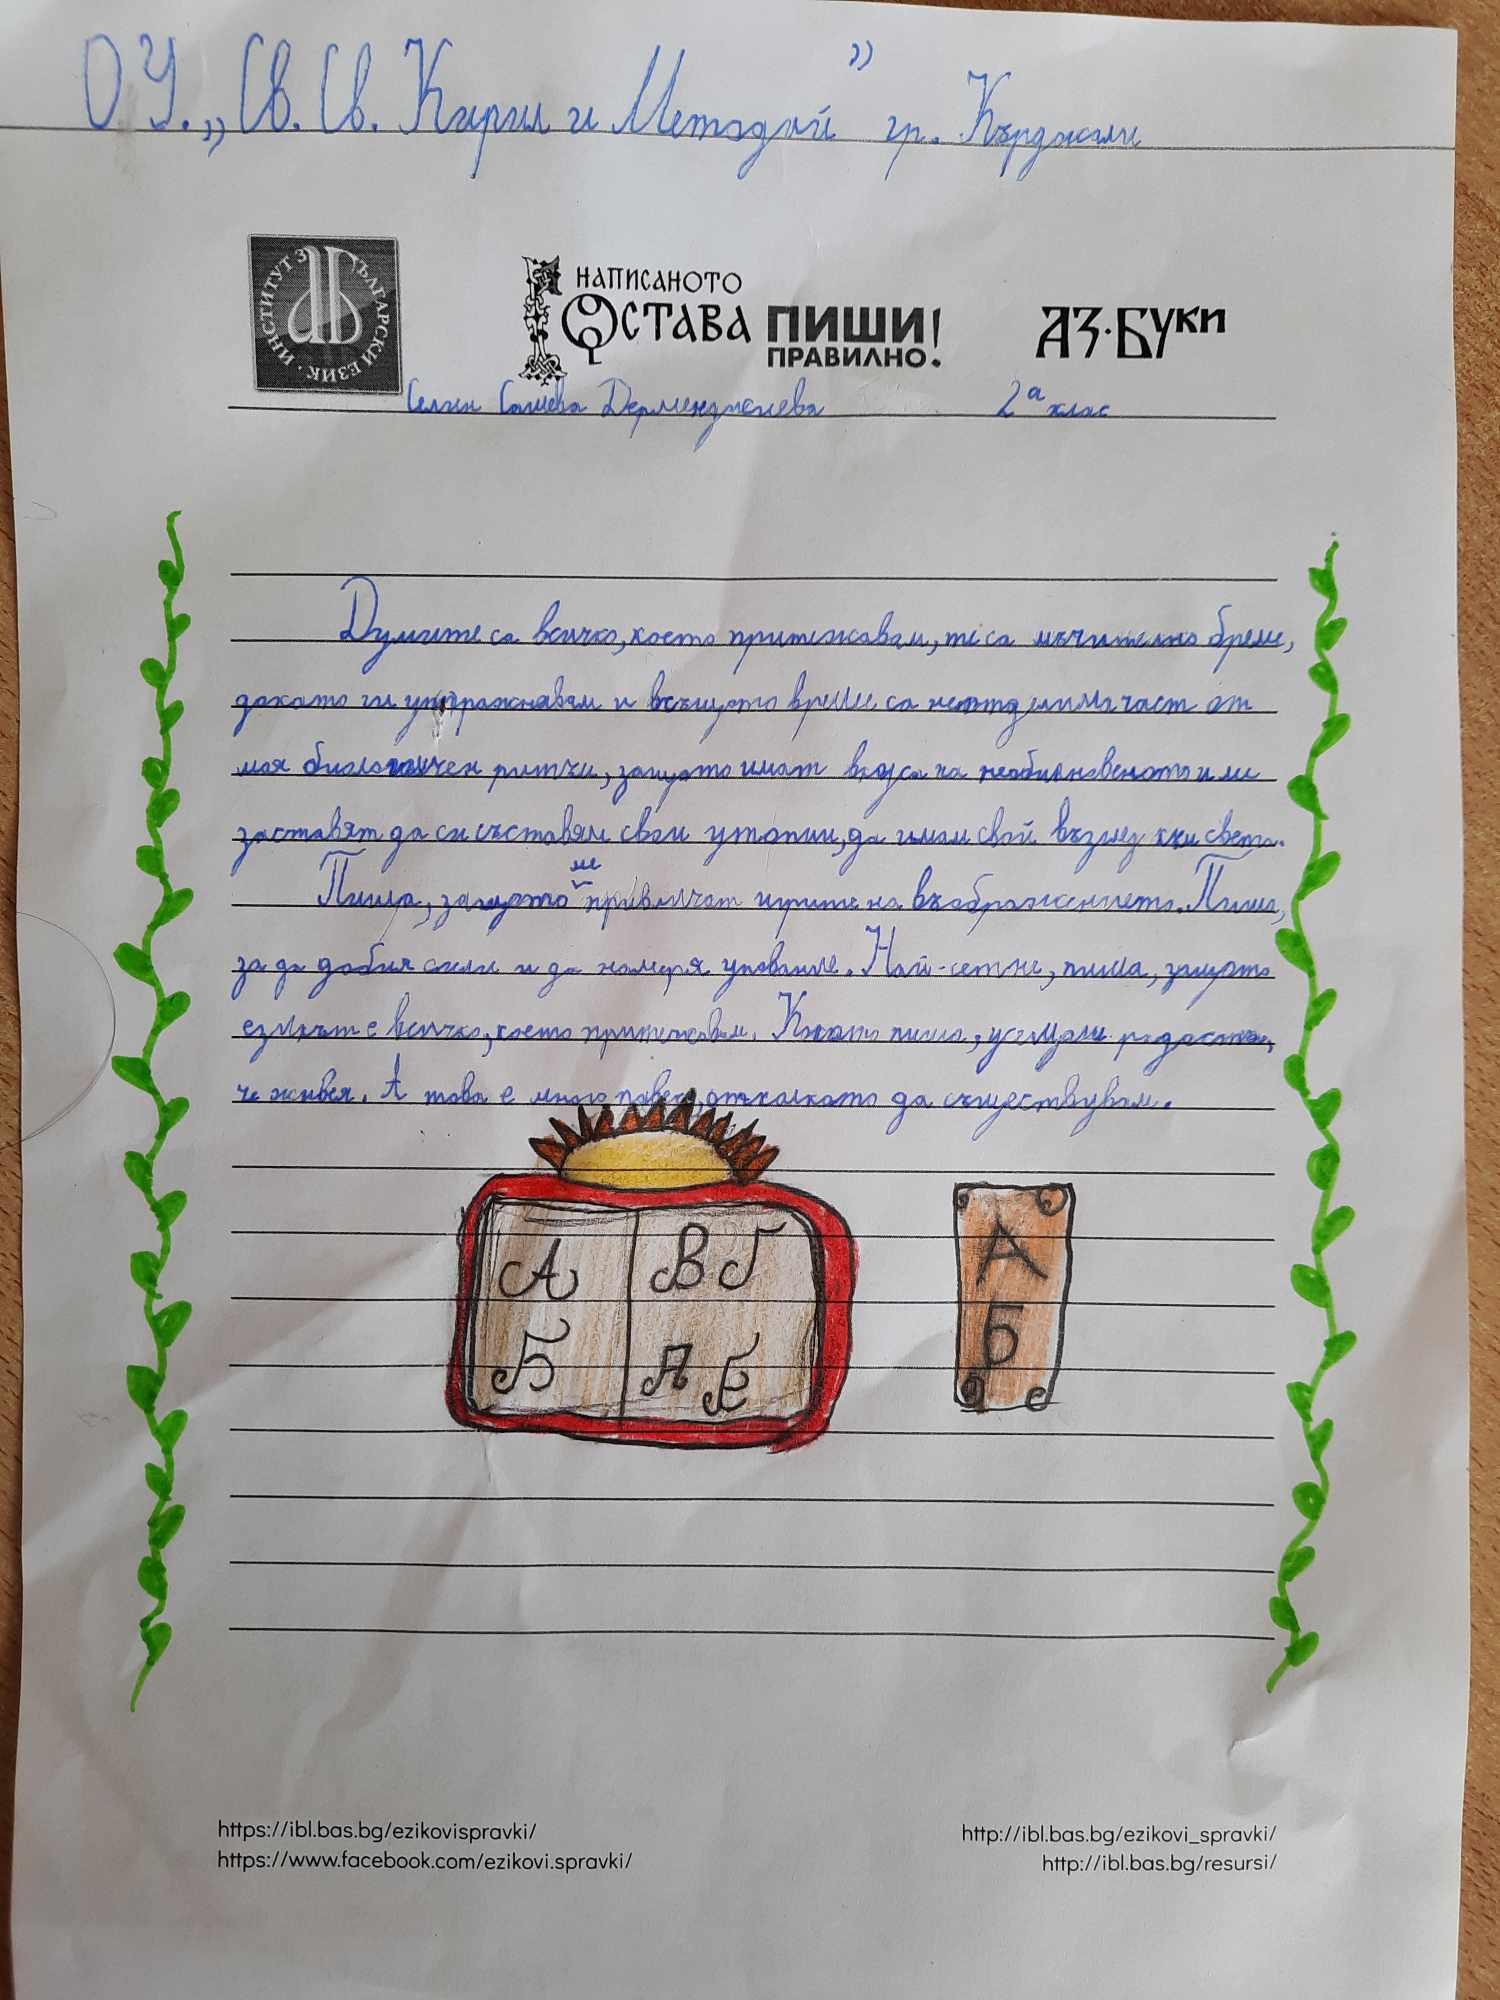 ОУ. „Св. Св. Кирил и Методий” гр. Кърджали
ИНСТИТУТ ЗА БЪЛГАРСКИ ЕЗИК
НАПИСАНОТО
ОСТАВА ПИШИ
ПРАВИЛНО!
АЗ·БУКИ
Селин Сашева Дерменджиева 2а клас
Думите са всичко, което притежавам, те са мъчително бреме,
докато ги упражнявам и в същото време са неотделима част от
моя биологичен ритъм, защото имат вкуса на необикновеното и ме
заставят да си съставям свои утопии, да имам свой възглед към света.
Пиша, защото ме привличат игрите на въображението. Пиша,
за да добия сили и да намеря упование. Най-сетне, пиша, защото
езикът е всичко, което притежавам. Когато пиша, усещам радостта,
че живея. А това е много повече, отколкото да съществувам.
А В Г
Б Д Е
А
Б
https://ibl.bas.bg/ezikovispravki/ http://ibl.bas.bg/ezikovi_spravki/
https://www.facebook.com/ezikovi.spravki/ http://ibl.bas.bg/resursi/